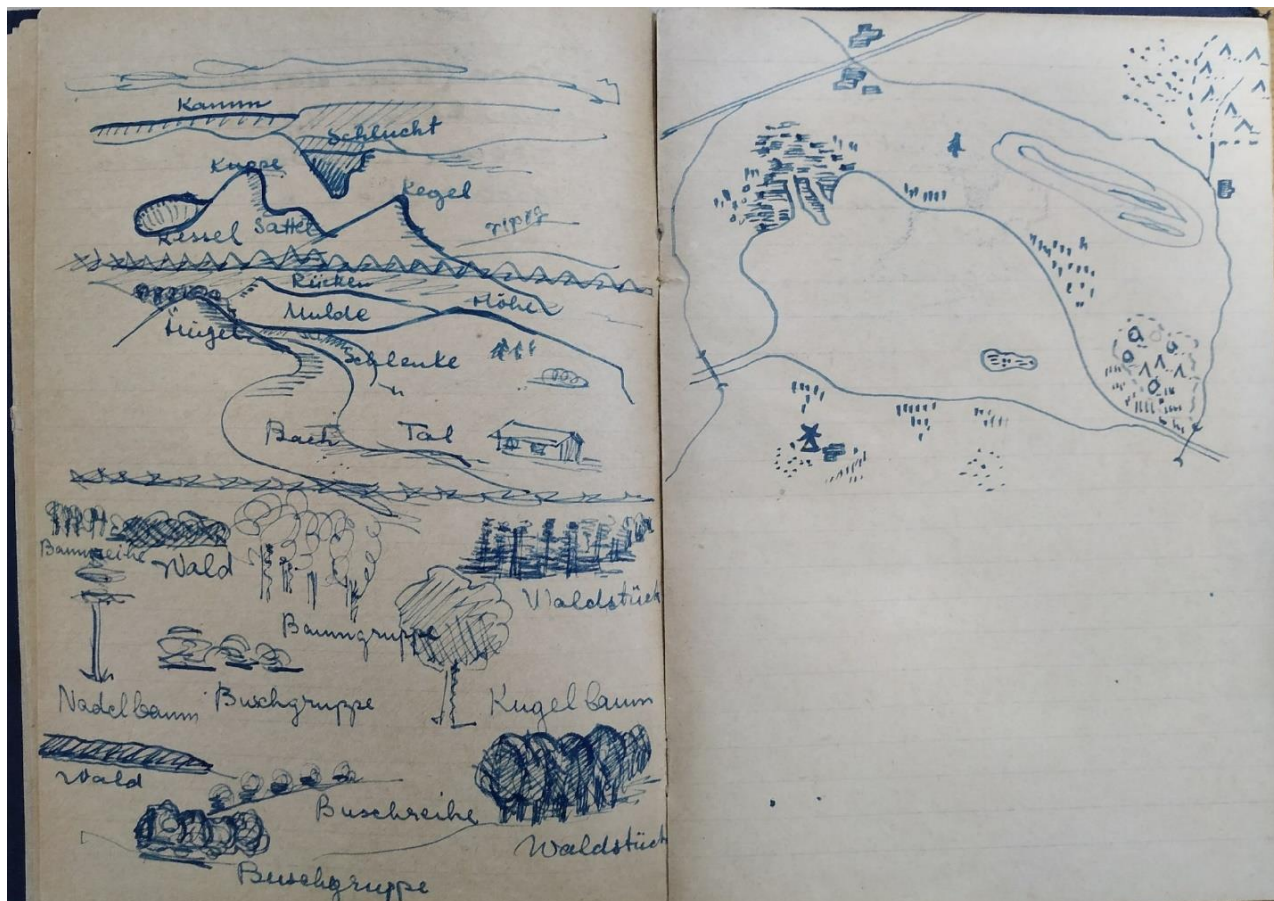 Kamm
Schlucht
Kuppe
Kegel
Kessel Sattel
Rücken
Mulde Höhe
Hügel
Schlenke
Bach Tal
Baumreihe
Wald
Waldstück
Baumgruppe
Nadelbaum Buschgruppe Kugelbaum
Wald
Buschreihe
Waldstück
Buschgruppe